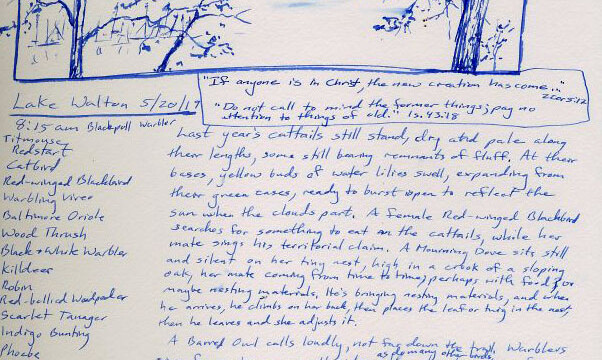 "If anyone is in Christ, the new creation has come..."
2 Cor 5:17
"Do not call to mind the former things; pay no
attention to things of old." Is. 43:18
Lake Walton 5/20/17
8:15 am Blackpoll Warbler
Titmouse
Redstart
Catbird
Red-winged Blackbird
Warbling Vireo
Baltimore Oriole
Wood Thrush
Black & White Warbler
Killdeer
Robin
Red-bellied Woodpecker
Scarlet Tanager
Indigo Bunting
Phoebe
Last year's cattails still stand, dry and pale along
their lengths, some still bearing remnants of fluff. At their
bases, yellow buds of water lilies swell, expanding from
their green cases, ready to burst open to reflect the
sun when the clouds part. A female Red-winged Blackbird
searches for something to eat on the cattails, while her
mate sings his territorial claim. A Mourning Dove sits still
and silent on her tiny nest, high in a crook of a sloping
oak, her mate coming from time to time, perhaps with food, or
maybe nesting materials. It's bringing nesting materials, and when
he arrives, he climbs on her back, then places the leaf or twig in the nest,
then he leaves and she adjusts it.
A Barred Owl calls loudly, not far down the trail. Warblers
as do many other birds